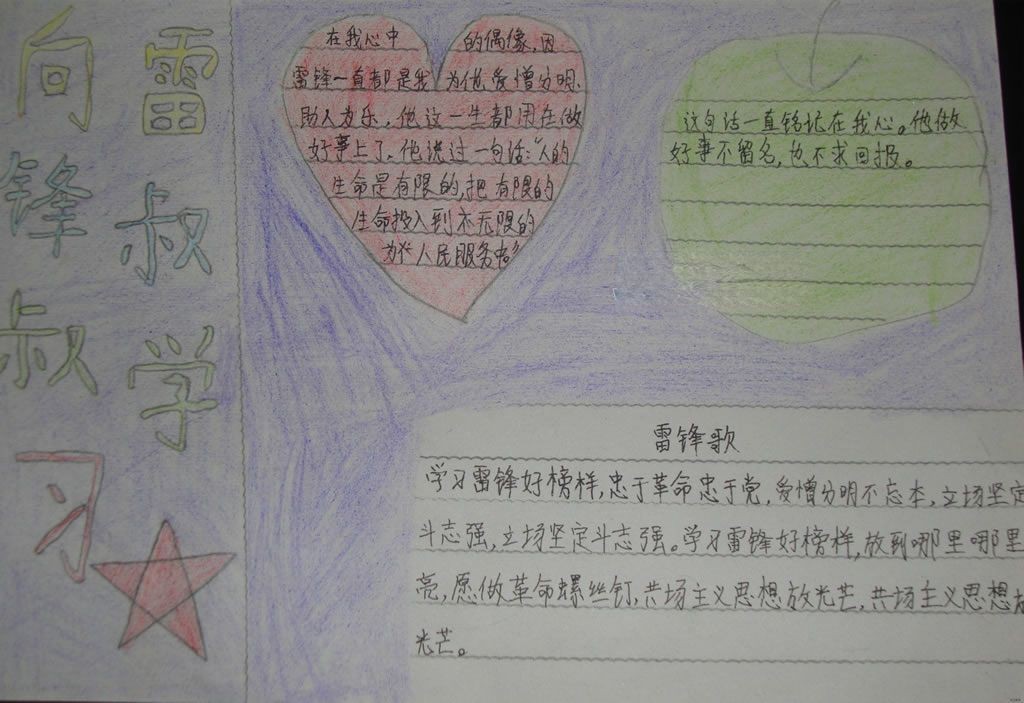 向雷
锋叔
叔学
习
在我心中
雷锋一直都是我
的偶像,因
为他爱憎分明、
助人为乐。他这一生都用在做
好事上了。他说过一句话:“人的
生命是有限的,把有限的
生命投入到 无限的
为人民服务中
这句话一直铭记在我心。他做
好事不留名,也不求回报。
雷锋歌
学习雷锋好榜样,忠于革命忠于党,爱憎分明不忘本,立场坚定
斗志强,立场坚定斗志强。学习雷锋好榜样,放到哪里哪里
亮,愿做革命螺丝钉,共场主义思想放光芒,共场主义思想放
光芒。